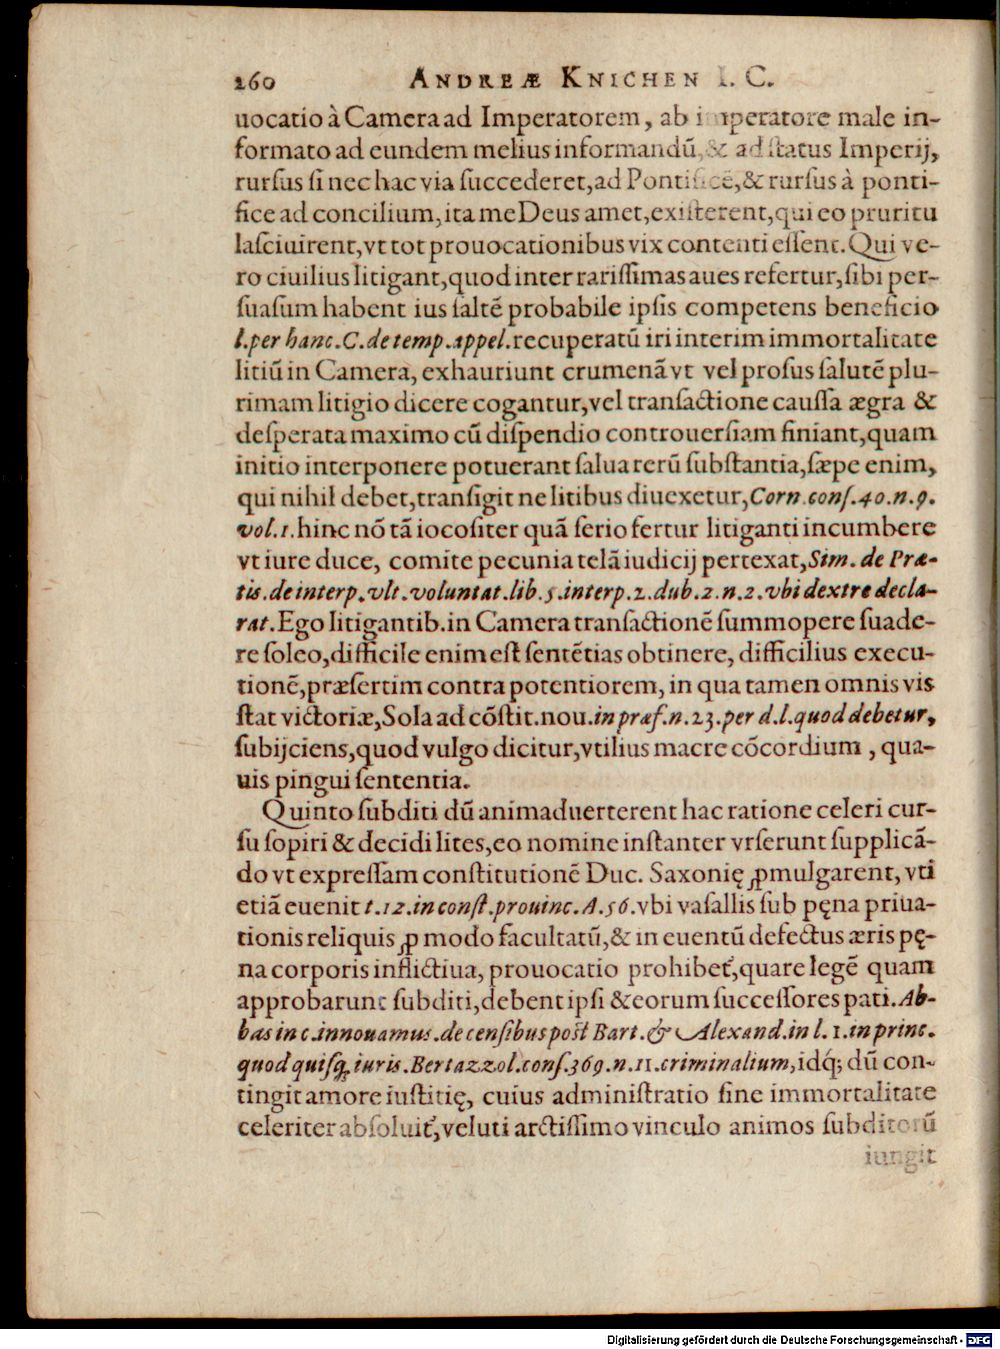 260 ANDREÆ KNICHEN I. C.
uocatio à Camera ad Imperatorem, ab imperatore male in-
formato ad eundem melius informandũ, & ad ſtatus Imperij,
rurſus ſi nec hac via ſuccederet, ad Pontificẽ, & rurſus à ponti-
fice ad concilium, ita me Deus amet, exiſterent, qui eo pruritu
laſciuirent, vt tot prouocationibus vix contenti eſſent. Qui ve-
ro ciuilius litigant, quod inter rariſſimas aues refertur, ſibi per-
ſuaſum habent ius ſaltẽ probabile ipſis competens beneficio
l. per hanc. C. de temp. appel. recuperatũ iri interim immortalitate
litiũ in Camera, exhauriunt crumenã vt vel proſus ſalutẽ plu-
rimam litigio dicere cogantur, vel tranſactione cauſſa ægra &
deſperata maximo cũ diſpendio controuerſiam finiant, quam
initio interponere potuerant ſalua rerũ ſubſtantia, ſæpe enim,
qui nihil debet, tranſigit ne litibus diuexetur, Corn. conſ. 40. n. 9.
vol. 1. hinc nõ tã iocoſiter quã ſerio fertur litiganti incumbere
vt iure duce, comite pecunia telã iudicij pertexat, Sim. de Præ-
tis. de interp. vlt. voluntat. lib. 5. interp. 2. dub. 2. n. 2. vbi dextre decla-
rat. Ego litigantib. in Camera tranſactionẽ ſummopere ſuade-
re ſoleo, difficile enim eſt ſentẽtias obtinere, difficilius execu-
tionẽ, præſertim contra potentiorem, in qua tamen omnis vis
ſtat victoriæ, Sola ad cõſtit. nou. in præf. n. 23. per d. l. quod debetur,
ſubijciens, quod vulgo dicitur, vtilius macre cõcordium, qua-
uis pingui ſententia.
Quinto ſubditi dũ animaduerterent hac ratione celeri cur-
ſu ſopiri & decidi lites, eo nomine inſtanter vrſerunt ſupplicã-
do vt expreſſam conſtitutionẽ Duc. Saxonię ꝓmulgarent, vti
etiã euenit t. 12. in conſt. prouinc. A. 56. vbi vaſallis ſub pęna priua-
tionis reliquis ꝓ modo facultatũ, & in euentũ defectus æris pę-
na corporis inflictiua, prouocatio prohibet᷑, quare legẽ quam
approbarunt ſubditi, debent ipſi & eorum ſucceſſores pati. Ab-
bas in c. innouamus. de cenſibus poſt Bart. & Alexand. in l. 1. in princ.
quod quiſq; iuris. Bertazzol. conſ. 369. n. 11. criminalium, idq́; dũ con-
tingit amore iuſtitię, cuius adminiſtratio ſine immortalitate
celeriter abſoluit᷑, veluti arctiſſimo vinculo animos ſubditorũ
iungit
Digitalisierung gefördert durch die Deutsche Forschungsgemeinschaft - DFG